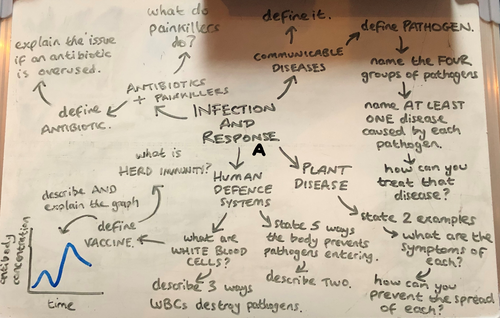 what do
painkillers
do?
define it.
define PATHOGEN.
explain the issue
if an antibiotic
is overused.
COMMUNICABLE
DISEASES
name the FOUR
groups of pathogens
ANTIBIOTICS
+ PAINKILLERS
define
ANTIBIOTIC.
INFECTION
AND
RESPONSE
A
name AT LEAST
ONE disease
caused by each
pathogen.
what is
HERD IMMUNITY?
HUMAN
DEFENCE
SYSTEMS
PLANT
DISEASE
how can you
treat that
disease?
describe AND
explain the graph
define
VACCINE.
what are
WHITE BLOOD
CELLS?
state 5 ways
the body prevents
pathogens entering.
state 2 examples
what are the
symptoms of
each?
antibody
concentration
time
describe 3 ways
WBCs destroy pathogens.
describe TWO.
how can you
prevent the spread
of each?